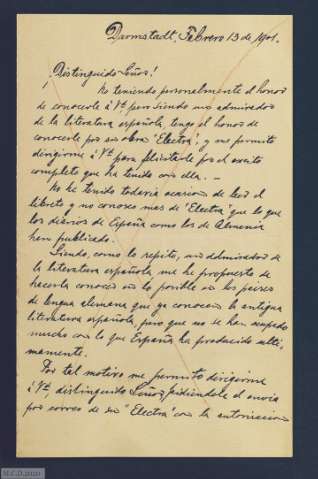 Darmstadt, Febrero 13 de 1901.
¡Distinguido Señor!
No teniendo personalmente el honor
de conocerle á Vd. pero siendo un admirador
de la literatura española, tengo el honor de
conocerle por su obra "Electra", y me permito
dirigirme á Vd. para felicitarle por el exito
completo que ha tenido con ella. —
No he tenido todavia ocasion de leer el
libreto y no conozco mas de "Electra" que lo que
los diarios de España como los de Alemania
han publicado.
Siendo, como lo repito, un admirador de
la literatura española me he propuesto de
hacerla conocer en lo posible en los paises
de lengua alemana que ya conocen la antigua
literatura española, pero que no se han ocupado
mucho con lo que España ha producido ulti-
mamente.
Por tal motivo me permito dirigirme
á Vd., distinguido Señor, pidiendole el envio
por correo de su "Electra" con la autorizacion